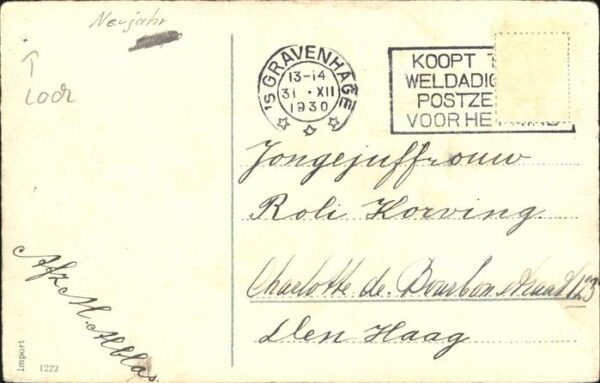 Neujahr
'S GRAVENHAGE
13-14
31 · XII
1930
KOOPT
WELDADIG
POSTZE
VOOR HE
Jongejuffrouw
Roli Korving
Charlotte de Bourbonstraat 123
den Haag
Afz. M. Abbas.
Import 1222